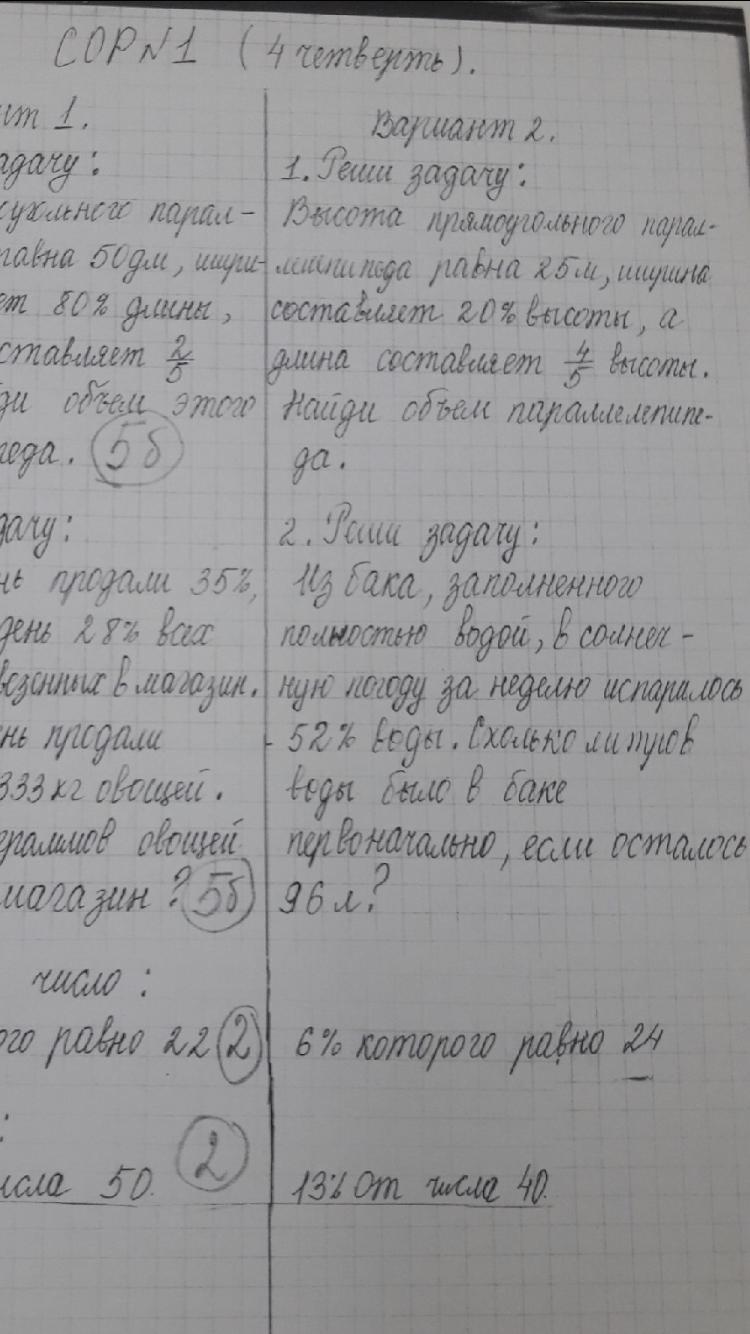 СОР №1 (4 четверть).
нт 1.
адачу:
оугольного парал-
равна 50дм, шири-
ет 80% длины,
ставляет 2/5
ди объем этого
педа. 5б
дачу:
нь продали 35%,
день 28% всех
везенных в магазин.
нь продали
333кг овощей.
граммов овощей
магазин? 5б
число:
ого равно 22 2
:
исла 50. 2
Вариант 2.
1. Реши задачу:
Высота прямоугольного парал-
лепипеда равна 25м, ширина
составляет 20% высоты, а
длина составляет 4/5 высоты.
Найди объем параллелепипе-
да.
2. Реши задачу:
Из бака, заполненного
полностью водой, в солнеч-
ную погоду за неделю испарилось
- 52% воды. Сколько литров
воды было в баке
первоначально, если осталось
96 л?
6% которого равно 24
13% от числа 40.